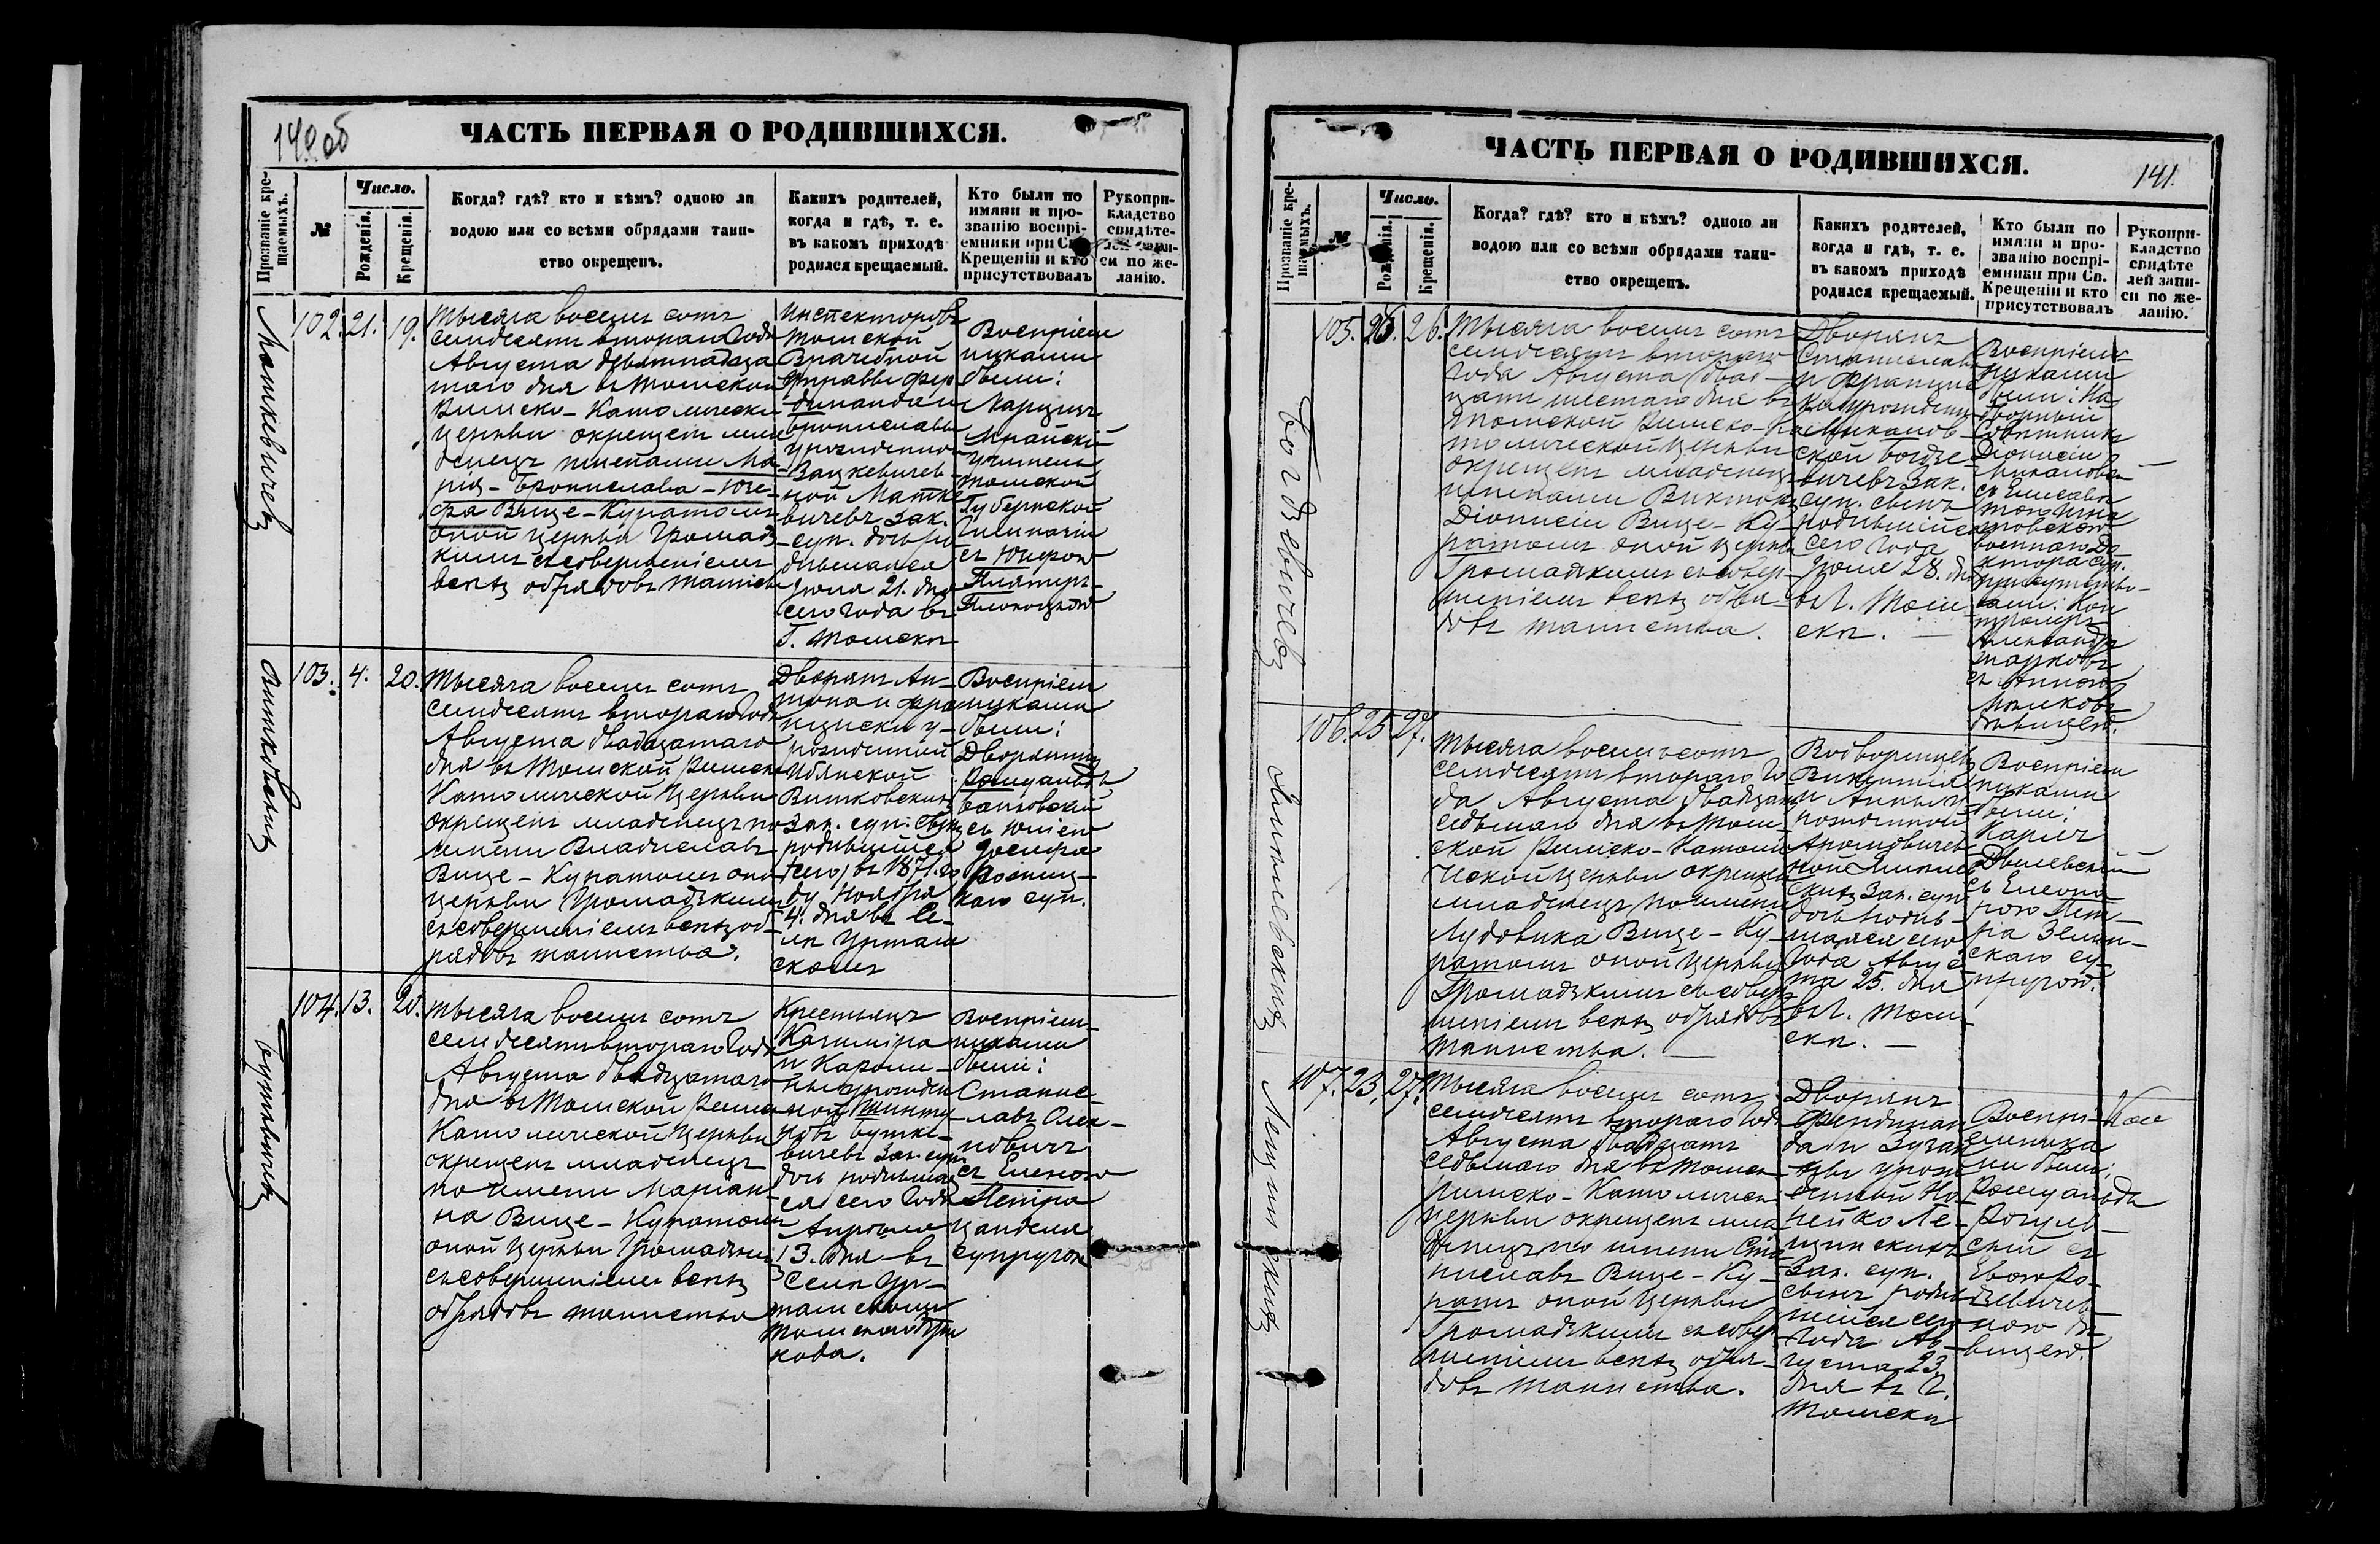 140 об
ЧАСТЬ ПЕРВАЯ О РОДИВШИХСЯ.
Прозваніе кре-
щаемыхъ.
№
Число.
Рожденія.
Крещенія.
Когда? гдѣ? кто и кѣмъ? одною ли
водою или со всѣми обрядами таин-
ство окрещенъ.
Какихъ родителей,
когда и гдѣ, т. е.
въ какомъ приходѣ
родился крещаемый.
Кто были по
имяни и про-
званію воспрі-
емники при Св.
Крещеніи и кто
присутствовалъ
Рукопри-
кладство
свидѣте-
си по же-
ланію.
Маткевичевъ
102. 21. 19.
Тысяча восемь сотъ
семдесятъ втораго Года
Августа девятнадца
таго дня въ Томской
Римско-Католической
церкви окрещенъ мла
денецъ именами Ма-
рія-Бронислава-Юзе-
фа Вице-Куратомъ
оной церкви Громадз
кимъ съ совершеніемъ
всѣхъ обрядовъ таинства
Инспекторовъ
Томской
Врачебной
Управы Фер
динанда и
Брониславы
урожденной
Вацкевичев
нойМатке
вичевъ зак.
суп. дочь ро
дившаяся
Іюня 21. дня
сего года въ
Г. Томскѣ
Воспріем
никами
были:
Нарцизъ
учитель
Томской
Губернской
Гимназіи
съ Юзефою
Витковскихъ
103. 4. 20.
Тысяча восемь сотъ
семдесятъ втораго Года
Августа двадцатаго
дня въ Томской Римско
Католической Церкви
окрещенъ младенецъ по
имени Владиславъ
Вице-Куратомъ оной
церкви Громадзкимъ
съ совершеніемъ всѣхъ об-
рядовъ таинства.
Дворянъ Ан-
тона и Фра
нциски у-
рожденной
Витковскихъ
зак. суп. сынъ
родившійся
въ 1871. го
ду Ноября
4. дня въ Се-
лѣ Уртам
скомъ
Воспріем
никами
были:
Дворянинъ
Ромуальдъ
съ Юліею
Іосифа
каго суп.
Буткевичевъ
104. 13. 20.
Тысяча восемь сотъ
семдесятъ втораго Года
Августа двадцатаго
дня въ Томской Римско
Католической Церкви
окрещенъ младенецъ
по имени Маріан-
на Вице-Куратомъ
оной церкви Громадзким
съ совершеніемъ всѣхъ
обрядовъ таинства
Крестьянъ
Казиміра
и Кароли-
ны урожден
ной
Бутке-
вичевъ зак. суп
дочь родившая
ся сего Года
Апрѣля
13. дня въ
Селѣ Ур-
тамскомъ
Томскаго Окру
Воспріем-
никами
были:
Станис-
лавъ Олех-
новичъ
съ Еленою
Петра
супругою
141.
ЧАСТЬ ПЕРВАЯ О РОДИВШИХСЯ.
Прозваніе кре-
щаемыхъ.
№
Число.
Рожденія.
Крещенія.
Когда? гдѣ? кто и кѣмъ? одною ли
водою или со всѣми обрядами таин-
ство окрещенъ.
Какихъ родителей,
когда и гдѣ, т. е.
въ какомъ приходѣ
родился крещаемый.
Кто были по
имяни и про-
званію воспрі-
емники при Св.
Крещеніи и кто
присутствовалъ
Рукопри-
кладство
свидѣте
лей запи-
си по же-
ланію.
Богдзевичевъ
105. 28. 26.
Тысяча восемь сотъ
семдесятъ втораго
Года Августа двад-
цать шестаго дня въ
Томской Римско-Ка
толической церкви
окрещенъ младенецъ
именами Викторъ
Діонисій Вице-Ку-
ратомъ оной церкви
Громадзкимъ съ совер-
шеніемъ всѣхъ обря-
довъ таинства.
Дворянъ
Станислава
и Францис
ки урожденн
ой Михалов-
ской Богдзе-
вичевъ зак.
суп. сынъ
родившійся
сего Года
Іюля 28. дня
въ Г. Том-
скѣ.
Воспріем-
никами
были: На
дворный
Совѣтникъ
Діонисій
Михаловскій
съ Елисаве
тою
военнаго до-
ктора суп.
присутство-
вали: Кон
тролеръ
Александръ
Марковъ
съ Анною
дѣвицею.
106. 25 27.
Тысяча восемь сотъ
семдесятъ втораго Го
да Августа двадцать
седьмаго дня въ Том-
ской Римско-Католи
ческой церкви окрещенъ
младенецъ по имени
Людовика Вице-Ку-
ратомъ оной церкви
Громадзкимъ съ совер
шеніемъ всѣхъ обрядовъ
таинства.
Водворенцевъ
Викентія
и Анны у-
рожденной
зак. суп
дочь родив-
шаяся сего
Года Авгус
та 25. дня
въ Г. Том-
скѣ.
Воспріем
никами
были:
Карлъ
съ Елеоно-
рою Пет-
ра
скаго су-
пругою.
Лещинскихъ
107. 23. 27.
Тысяча восемь сотъ
семдесятъ втораго Года
Августа двадцать
седьмаго дня въ Томск
Римско-Католическ
церкви окрещенъ мла
денецъ по имени Ста
ниславъ Вице-Ку-
ратъ оной церкви
Громадзкимъ съ совер
шеніемъ всѣхъ обря-
довъ таинства.
Дворянъ
Фердинан
да и Зузан
ны урож
денной Но
вейко Ле-
щинскихъ
Зак. суп.
сынъ родив
шійся сего
Года Ав-
густа 23
дня въ Г.
Томскѣ
Воспрі-
емника
ми были:
Ромуальдъ
Рогуль-
скій съ
Евою
ною дѣ-
вицею.